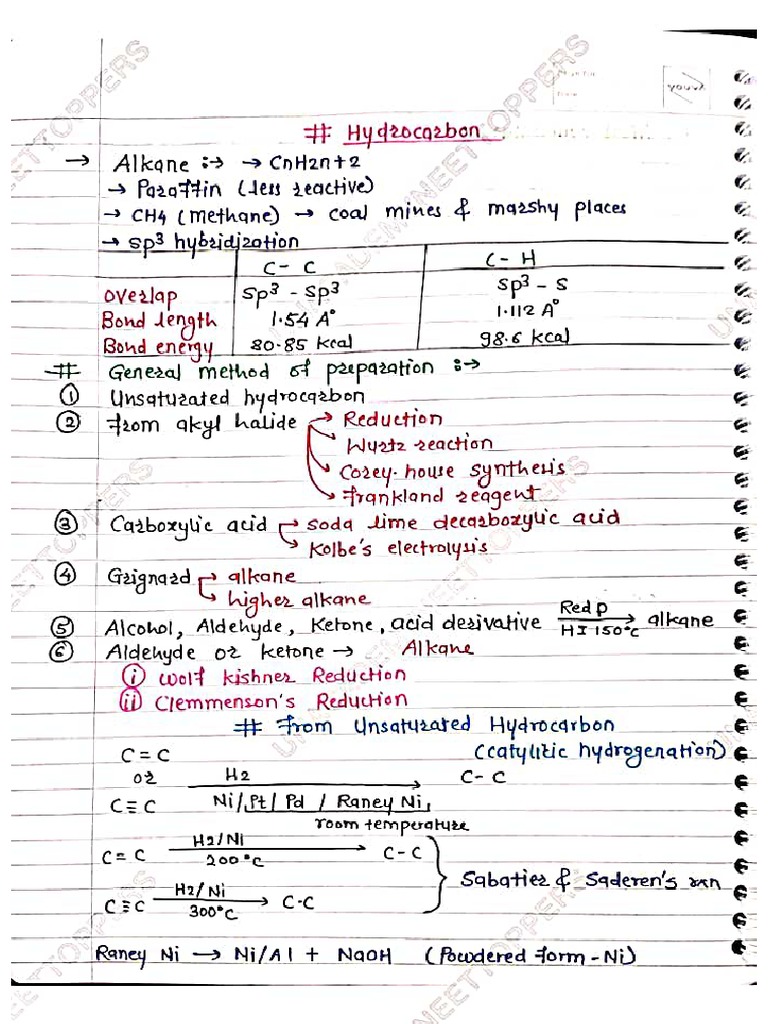 # Hydrocarbon
→ Alkane :→ → CnH2n+2
→ Paraffin (less reactive)
→ CH4 (Methane) → coal mines & marshy places
→ sp³ hybridization
C - C C - H
overlap sp³ - sp³ sp³ - s
Bond length 1.54 A° 1.112 A°
Bond energy 80.85 kcal 98.6 kcal
# General method of preparation :→
① Unsaturated hydrocarbon
② From akyl halide → Reduction
→ Wurtz reaction
→ Corey-house synthesis
→ Frankland reagent
③ Carboxylic acid → soda lime decarboxylic acid
→ Kolbe's electrolysis
④ Grignard → alkane
→ higher alkane
⑤ Alcohol, Aldehyde, Ketone, acid derivative Red P HI 150°C → alkane
⑥ Aldehyde or ketone → Alkane
ⓘ Wolf kishner Reduction
ⓘⓘ Clemmenson's Reduction
# From Unsaturated Hydrocarbon
C = C (catylitic hydrogenation)
or H2 → C - C
C ≡ C Ni/Pt/Pd / Raney Ni,
room temperature
C = C H2/Ni 200°C → C-C
Sabatier & Saderen's rxn
C ≡ C H2/Ni 300°C → C-C
Raney Ni → Ni/Al + NaOH (Powdered form - Ni)